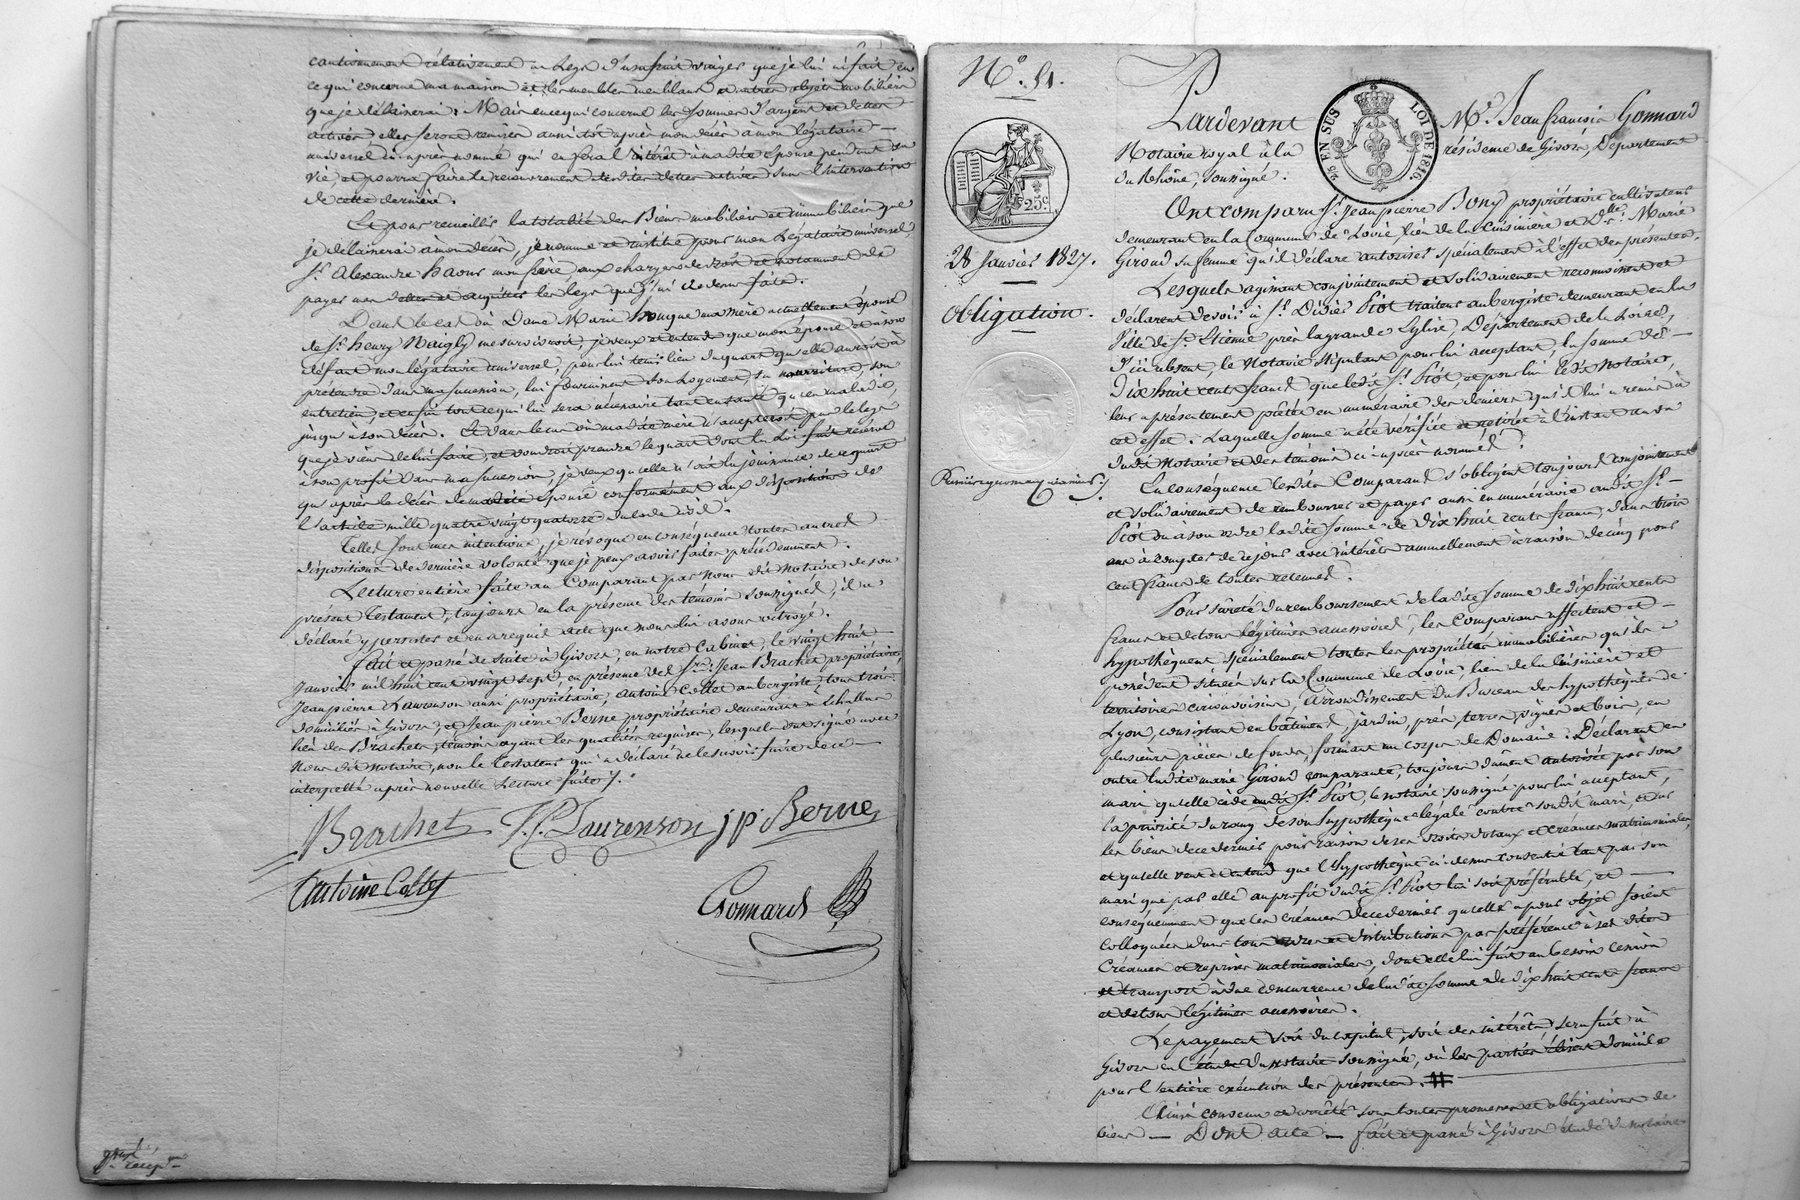 cautionnement relativement au legs d'usufruit viager que je lui ai fait en
ce qui concerne ma maison et les meubles meublans et autres objets mobiliers
que je délaisserai. Mais en ce qui concerne les sommes d'argent et dettes
actives elles seront remises aussitôt après mon décès à mon légataire
universel ci-après nommé qui en fera l'intérêt à madite épouse pendant sa
vie, et pourra faire le recouvrement desdites dettes actives sans l'intervention
de cette dernière.
Et pour recueillir la totalité des Biens mobiliers et immobiliers que
je délaisserai à mon décès, je nomme et institue pour mon légataire universel,
Sr. Alexandre haour mon frère aux charges de droit et notamment de
payer mes dettes et acquitter les legs que j'ai ci-dessus faits.
Dans le cas où Dame Marie hougue ma mère actuellement épouse
de Sr. henry Naigly me survivroit, je veux et entends que mon épouse et à son
défaut mon légataire universel, pour lui tenir lieu du quart qu'elle auroit à
prétendre dans ma succession, lui fournissent son logement, sa nourriture, son
entretien, et enfin tout ce qui lui sera nécessaire tant en santé qu'en maladie,
jusqu'à son décès. Et dans le cas où madite mère n'accepteroit pas le legs
que je viens de lui faire, et voudroit prendre le quart dont la loi fait réserve
à son profit dans ma succession, je veux qu'elle n'ait la jouissance de ce quart
qu'après le décès de madite épouse conformément aux dispositions de
l'article mille quatre vingt quatorze du code civil.
Telles sont mes intentions, je révoque en conséquence toutes autres
dispositions de dernière volonté que je peux avoir faites précédemment.
Lecture entière faite au Comparant par nous dit notaire de son
présent testament, toujours en la présence des témoins soussignés, il a
déclaré y persister et en a requis acte que nous lui avons octroyé.
fait et passé de suite à Givors, en notre Cabinet, le vingt huit
Janvier mil huit cent vingt sept, en présence des Srs. Jean Brachet propriétaire,
Jean pierre Laurenson aussi propriétaire, antoine Collet aubergiste, tous trois
domiciliés à Givors, et Jean pierre Berne propriétaire demeurant à Echallas
lieu des Brachets, témoins ayant les qualités requises, lesquels ont signé avec
Nous dit notaire, non le testateur qui a déclaré ne le savoir faire de ce
interpellé après nouvelle lecture faite.
Brachet J. P. Laurenson jp Berne
antoine Collet
Gonnard
No. 51.
28 Janvier 1827.
Obligation.
25c
25 EN SUS LOI DE 1816.
Pardevant Me. Jean françois Gonnard
Notaire royal à la résidence de Givors, Département
du Rhône, soussigné.
Ont comparu Sr. Jean pierre Bony propriétaire cultivateur
demeurant en la Commune de Loire, lieu de la Cuisinière et Dlle. Marie
Giroud sa femme qu'il déclare autoriser spécialement à l'effet des présentes.
Lesquels agissant conjointement et solidairement reconnoissent et
déclarent devoir à Sr. Didier Piot traiteur aubergiste demeurant en la
Ville de St. Etienne près la grande Eglise, Département de la Loire,
D'ici absent, le Notaire stipulant pour lui acceptant, la somme de
Dix huit cents francs que ledit Sr. Piot, et pour lui ledit Notaire,
leur a présentement prêtée en numéraire des deniers qu'il lui a remis à
cet effet. Laquelle somme a été vérifiée et retirée à l'instant au vu
dudit Notaire et des témoins ci-après nommés.
En conséquence lesdits Comparans s'obligent toujours conjointement
et solidairement de rembourser et payer aussi en numéraire audit Sr.
Piot ou à son ordre ladite somme de Dix huit cents francs, dans trois
ans à compter de ce jour avec intérêts annuellement à raison de cinq pour
cent francs de toutes retenues.
Pour sûreté du remboursement de ladite somme de dix huit cents
francs et de tous légitimes accessoires, les Comparans affectent et
hypothèquent spécialement toutes les propriétés immobilières qu'ils
possèdent situées sur la Commune de Loire, lieu de la Cuisinière et
territoires circonvoisins, arrondissement du Bureau des hypothèques de
Lyon, consistant en bâtimens, jardin, prés, terres, vignes et bois, en
plusieurs pièces de fonds, formant un corps de Domaine. Déclarant en
outre ladite marie Giroud comparante, toujours dûment autorisée par son
mari qu'elle cède audit Sr. Piot, le notaire soussigné pour lui acceptant,
la priorité du rang de son hypothèque légale contre sondit mari, et sur
les biens de ce dernier pour raison de ses droits dotaux et créances matrimoniales,
et qu'elle veut et entend que l'hypothèque ci-dessus consentie tant par son
mari que par elle au profit dudit Sr. Piot lui soit préférable, et
conséquemment que les créances de ce dernier qu'elle a pour objet soient
colloquées dans tous ordres et distributions par préférence à ses dites
Créances et reprises matrimoniales, dont elle lui fait au besoin cession
et transport à due concurrence de ladite somme de dix huit cents francs
et de tous légitimes accessoires.
Le payement soit du capital, soit des intérêts, sera fait à
Givors en l'étude du notaire soussigné, où les parties élisent domicile
pour l'entière exécution des présentes.
Ainsi convenu et arrêté sous toutes promesses et obligations de
biens — Dont acte — fait et passé à Givors étude du notaire